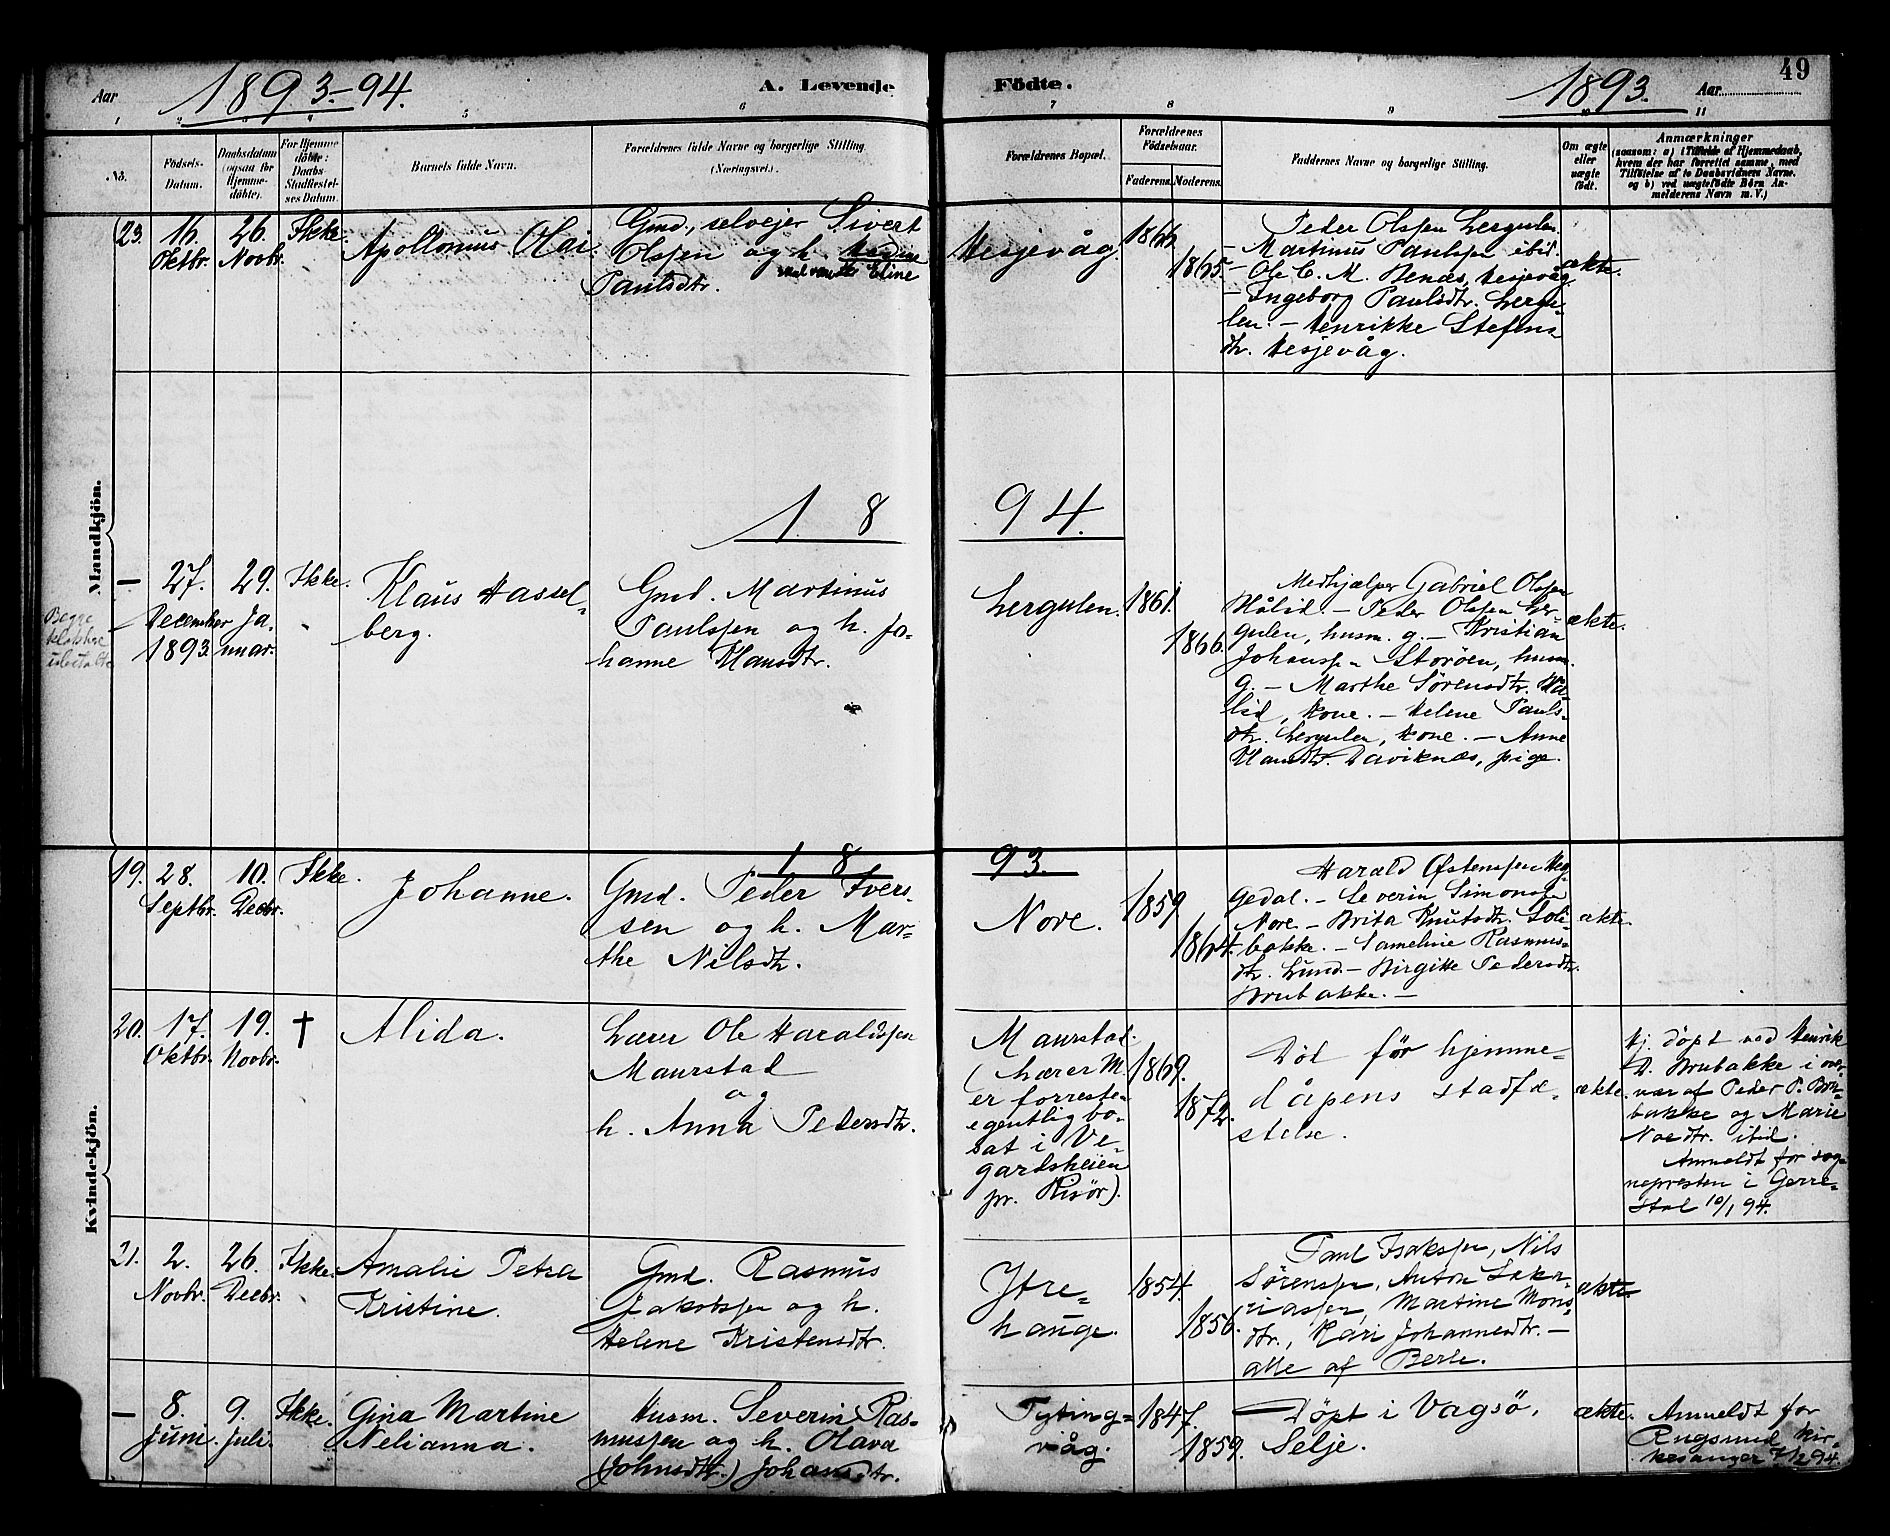 Aar 1893-94. A. Levende Födte. 1893. Aar 49
1 2 3 4 5 6 7 8 9 10 11
No.
Födsels-
Datum.
Daabsdatum
(ogsaa for
Hjemme-
döbte).
For Hjemme
döbte:
Daabs-
Stadfæstel-
ses Datum.
Barnets fulde Navn.
Forældrenes fulde Navne og borgerlige Stilling
(Næringsvei).
Forældrenes Bopæl.
Forældrenes
Födselsaar.
Faderens. Moderens.
Faddernes Navne og borgerlige Stilling.
Om ægte
eller
uægte
födt.
Anmærkninger
(saasom: a) i Tilfælde af Hjemmedaab,
hvem der har forrettet samme, med
Tilföielse af to Daabsvidners Navne.
og b) ved uægtefödte Börn An-
melderens Navn m. V.)
Mandkjön.
23.
16.
Oktbr.
26.
Novbr.
Ikke.
Apollonius Olai.
Gmd, selvejer Sivert
Olssen og h.
Eline
Paulsdtr.
Hesjevåg.
1866
1865.
Peder Olssen Lergulen
- Martinus Paulssen ibid.
- Ole C. M. Henæs, Hesjevåg
- Ingeborg Paulsdtr. Lergu-
len. - Henrikke Stefens-
dtr. Hesjevåg.
ækte.
18 94.
Begge
—
27.
December
1893.
29.
Ja-
nuar.
Ikke.
Klaus Hassel-
berg.
Gmd. Martinus
Paulssen og h. Jo-
hanne Klausdtr.
Lergulen.
1861.
1866.
Medhjælper Gabriel Olssen
Hålid. - Peder Olssen Ler-
gulen, husm. g. - Kristian
Johanss-n Storøen, husm.
g. - Marthe Sørensdtr. Hå-
lid, kone. - Helene Pauls-
dtr. Lergulen, kone. - Anne
Klausdtr. Daviknæs, pige.
ækte.
18 93.
Kvindekjön.
19.
28.
Septbr.
10.
Decbr.
Ikke.
Johanne.
Gmd. Peder Ivers-
sen og h. Mar-
the Nilsdtr.
Nore.
1859
1864.
Harald Østenssen Heg-
gedal. - Severin Simonss-n
Nore - Brita Knutsdtr. Soli-
bakke. - Sameline Rasmus-
dtr. Lund. - Birgitte Pedersdtr.
Brubakke. -
ækte.
20.
17.
Oktbr.
19.
Novbr.
†
Alida.
Lærer Ole Haraldssen
Maurstad
og
h. Anna Pedersdtr.
Maurstad.
(Lærer M.
er forresten
egentlig bo-
sat i Ve-
gardsheien
pr. Risör).
1869.
1872.
Död för hjemme-
dåpens stadfæ-
stelse.
ækte.
Hj. döpt ved Henrik
D. Brubakke i over-
vær af Peder P. Bru-
bakke og Marie
Noedtr. ibid.
Anmeldt for sog-
nepresten i Gerre-
stad 10/1 94.
21.
2.
Novbr.
26.
Decbr.
Ikke.
Amalie Petra
Kristine.
Gmd. Rasmus
Jakobssen og h.
Helene Kristensdtr.
Ytre-
hauge.
1854.
1856.
Paul Isakssen, Nils
Sörenssen, Anton Sakr-
riassen, Martine Mons-
dtr., Kari Johannesdtr. -
alle af Berle.
ækte
—
8.
Juni.
9.
Juli.
Ikke.
Gina Martine
Nelianna.
Husm. Severin Ras-
mussen og h. Olava
(Johnsdtr.) Johansdtr.
Tytings-
våg.
1847.
1859.
Döpt i Vågsö,
Selje.
ækte.
Anmeldt for
Rugsund kir-
kesanger 7/2 94.